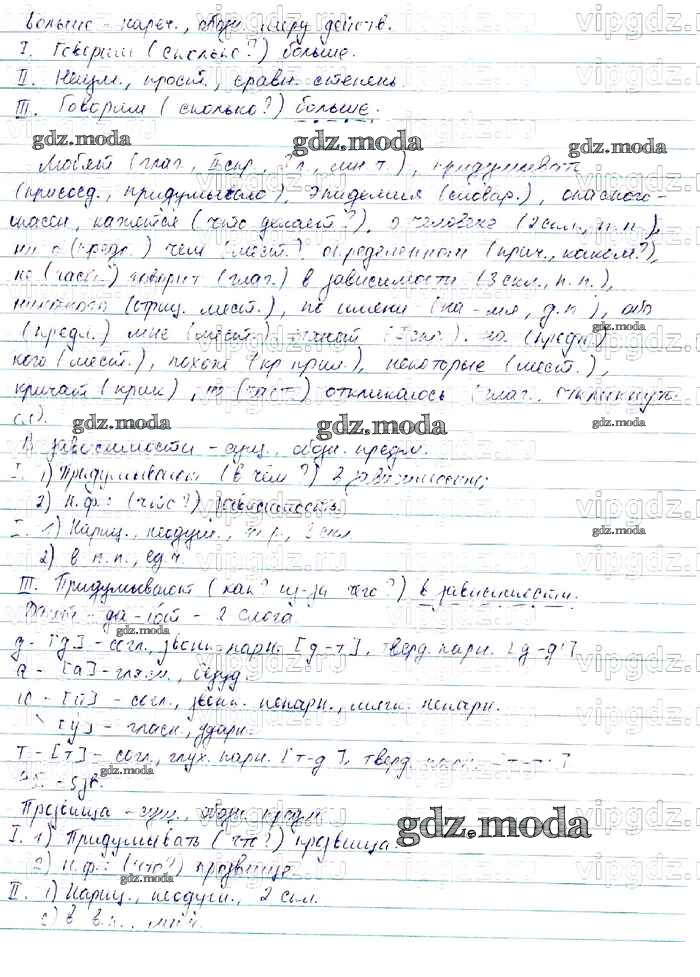 Больше - нареч., обозн. меру действ.
I. Говорим (сколько?) больше.
II. Неизм., прост., сравн. степень.
III. Говорим (сколько?) больше.
gdz.moda gdz.moda gdz.moda
Любят (глаг., II спр., 3 л., мн. ч.), придумывать
(присоед., придумывало), эпидемия (словар.), опасного-
ласен, кажется (что делает?), о человеке (2 скл., п. п.),
ни о (предл.) чем (мест.), определенном (прич., каком?),
не (част.) говорит (глаг.) в зависимости (3 скл., п. п.),
никакого (отриц. мест.), по имени (на -мя, д. п.), обо
(предл.) мне (мест.) на (предл.)
gdz.moda
кого (мест.), похож (кр. прил.), некоторые (мест.),
кричат (крик), не (част.) откликалось (глаг., откликнуть-
ся).
gdz.moda gdz.moda gdz.moda
В зависимости - сущ., обозн. предм.
I. 1) Придумывают (в чём?) в зависимости;
2) Н.ф.: (что?) зависимость
I. 1) Нариц., неодуш., ж. р., 3 скл.
gdz.moda gdz.moda
2) в п. п., ед. ч.
III. Придумывают (как? из-за чего?) в зависимости.
Дают - да-ют - 2 слога
gdz.moda
д - [д] - согл., звонк. парн. [д-т], тверд. парн. [д-д']
а - [а] - гласн., безуд.
ю - [й'] - согл., звонк. непарн., мягк. непарн.
\ [у] - гласн., ударн.
т - [т] - согл., глух. парн. [т-д], тверд. парн. [т-т']
gdz.moda
4 б. - 5 зв.
Прозвища - сущ., обозн. предм.
I. 1) Придумывать (что?) прозвища
gdz.moda
2) Н.ф.: (что?) прозвище
gdz.moda
II. 1) Нариц., неодуш., 2 скл.
2) в в. п., мн. ч.
vipgdz.moda